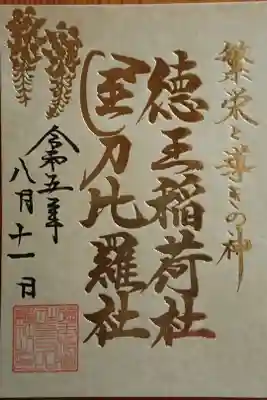 繁栄と導きの神
徳王稲荷社
金刀比羅社
令和五年
八月十一日